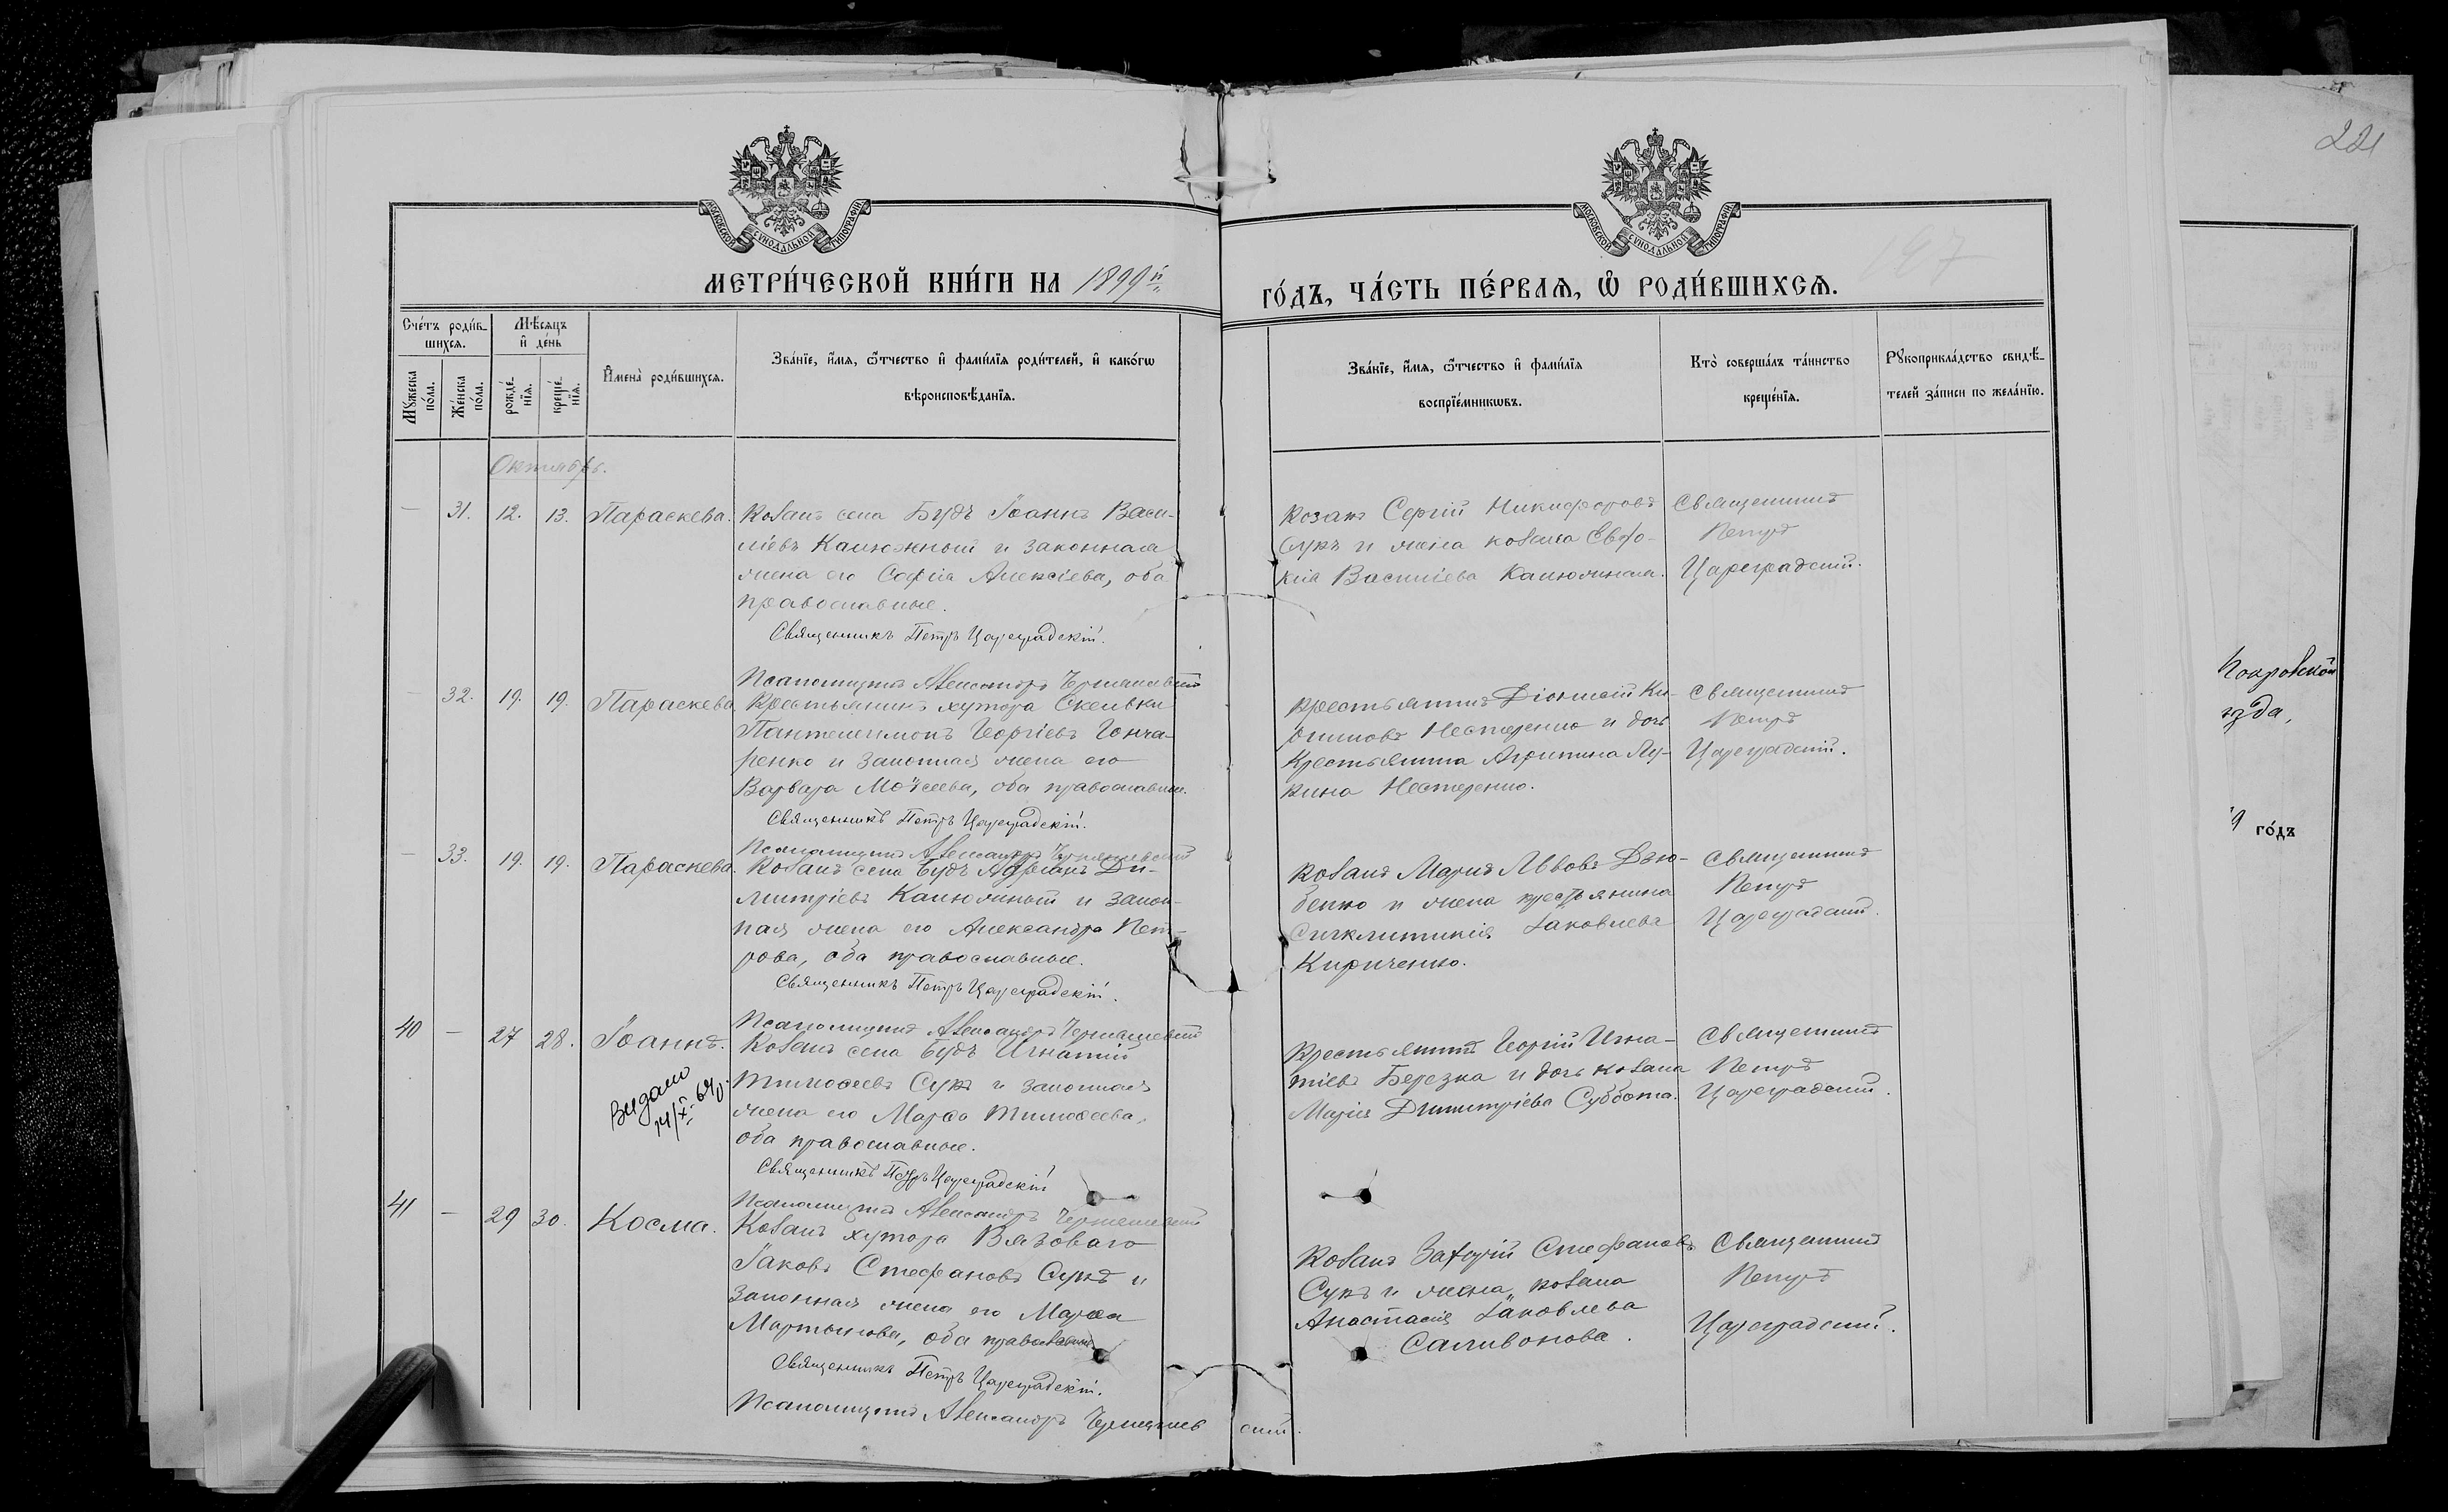 221
197
МОСКОВСКОЙ СѴНОДАЛЬНОЙ ТИПОГРАФІИ
МОСКОВСКОЙ СѴНОДАЛЬНОЙ ТИПОГРАФІИ
МЕТРИ́ЧЕСКОЙ КНИ́ГИ НА 1899й
ГО́ДЪ, ЧА́СТЬ ПЕ́РВАѦ, Ѽ РОДИ́ВШИХСѦ.
Сче́тъ роди́вшихсѧ.
Мꙋ́жеска по́ла.
Же́нска по́ла.
Мѣ́сѧцъ и҆ де́нь
рожде́нїѧ.
креще́нїѧ.
И҆мена̀ роди́вшихсѧ.
Зва́нїе, и҆́мѧ, ѻ҆́тчество и҆ фами́лїѧ роди́телей, и҆ како́гѡ
вѣроисповѣ́данїѧ.
Зва́нїе, и҆́мѧ, ѻ҆́тчество и҆ фами́лїѧ
воспрїе́мникѡвъ.
Кто̀ соверша́лъ та́инство
креще́нїѧ.
Рꙋкоприкла́дство свидѣ́-
телей за́писи по жела́нїю.
Октябрь.
— 31. 12. 13. Параскева.
Козакъ села Будъ Іоаннъ Васи-
ліевъ Калюжный и законная
жена его Софія Алексіева, оба
православные.
Священникъ Петръ Цареградскій.
Псаломщикъ Александръ
Козакъ Сергій Никифоровъ
Сукъ и жена козака Евдо-
кія Василіева Калюжная.
Священникъ
Петръ
Цареградскій.
— 32. 19. 19. Параскева
Крестьянинъ хутора Скелька
Пантелеимонъ Георгіевъ Гонча-
ренко и законная жена его
Варвара Моѵсеева, оба православные.
Священникъ Петръ Цареградскій.
Псаломщикъ Александръ
Крестьянинъ Діонисій Ки-
Нестеренко и дочь
Крестьянина Агрипина Лу-
кина Нестеренко.
Священникъ
Петръ
Цареградскій.
— 33. 19. 19. Параскева.
Козакъ села Будъ Адріанъ Ди-
митріевъ Калюжный и закон-
ная жена его Александра Пет-
рова, оба православные.
Священникъ Петръ Цареградскій.
Псаломщикъ Александръ
Козакъ Марко Львовъ Дзю-
бенко и жена крестьянина
Сигклитикія Іаковлева
Кириченко.
Священникъ
Петръ
Цареградскій.
40 — 27 28. Іоаннъ.
Видано
14/X
Козакъ села Будъ Игнатій
Тимоѳеевъ Сукъ и законная
жена его Марѳа Тимоѳеева,
оба православные.
Священникъ Петръ Цареградскій
Псаломщикъ Александръ
Крестьянинъ Георгій Игна-
тіевъ Березка и дочь козака
Марія Димитріева Суббота.
Священникъ
Петръ
Цареградскій.
41 — 29 30. Косма.
Козакъ хутора Вязоваго
Іаковъ Стефановъ Сукъ и
Законная жена его Марѳа
Мартынова, оба православные.
Священникъ Петръ Цареградскій.
Псаломщикъ Александръ
Козакъ Захарій Стефановъ
Сукъ и жена козака
Анастасія Іаковлева
Саливонова.
Священникъ
Петръ
Цареградскій.
Покровской
ѣзда,
9 го́дъ